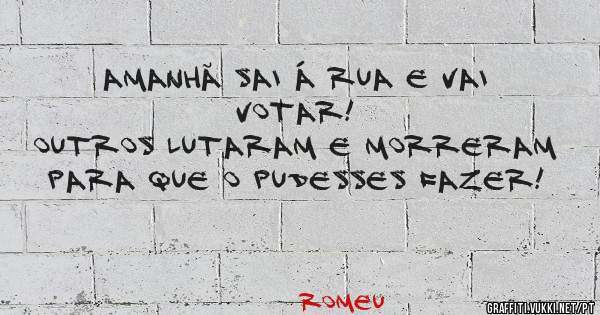 AMANHÃ SAI Á RUA E VAI
VOTAR!
OUTROS LUTARAM E MORRERAM
PARA QUE O PUDESSES FAZER!
ROMEU
GRAFFITI.VUKKI.NET/PT